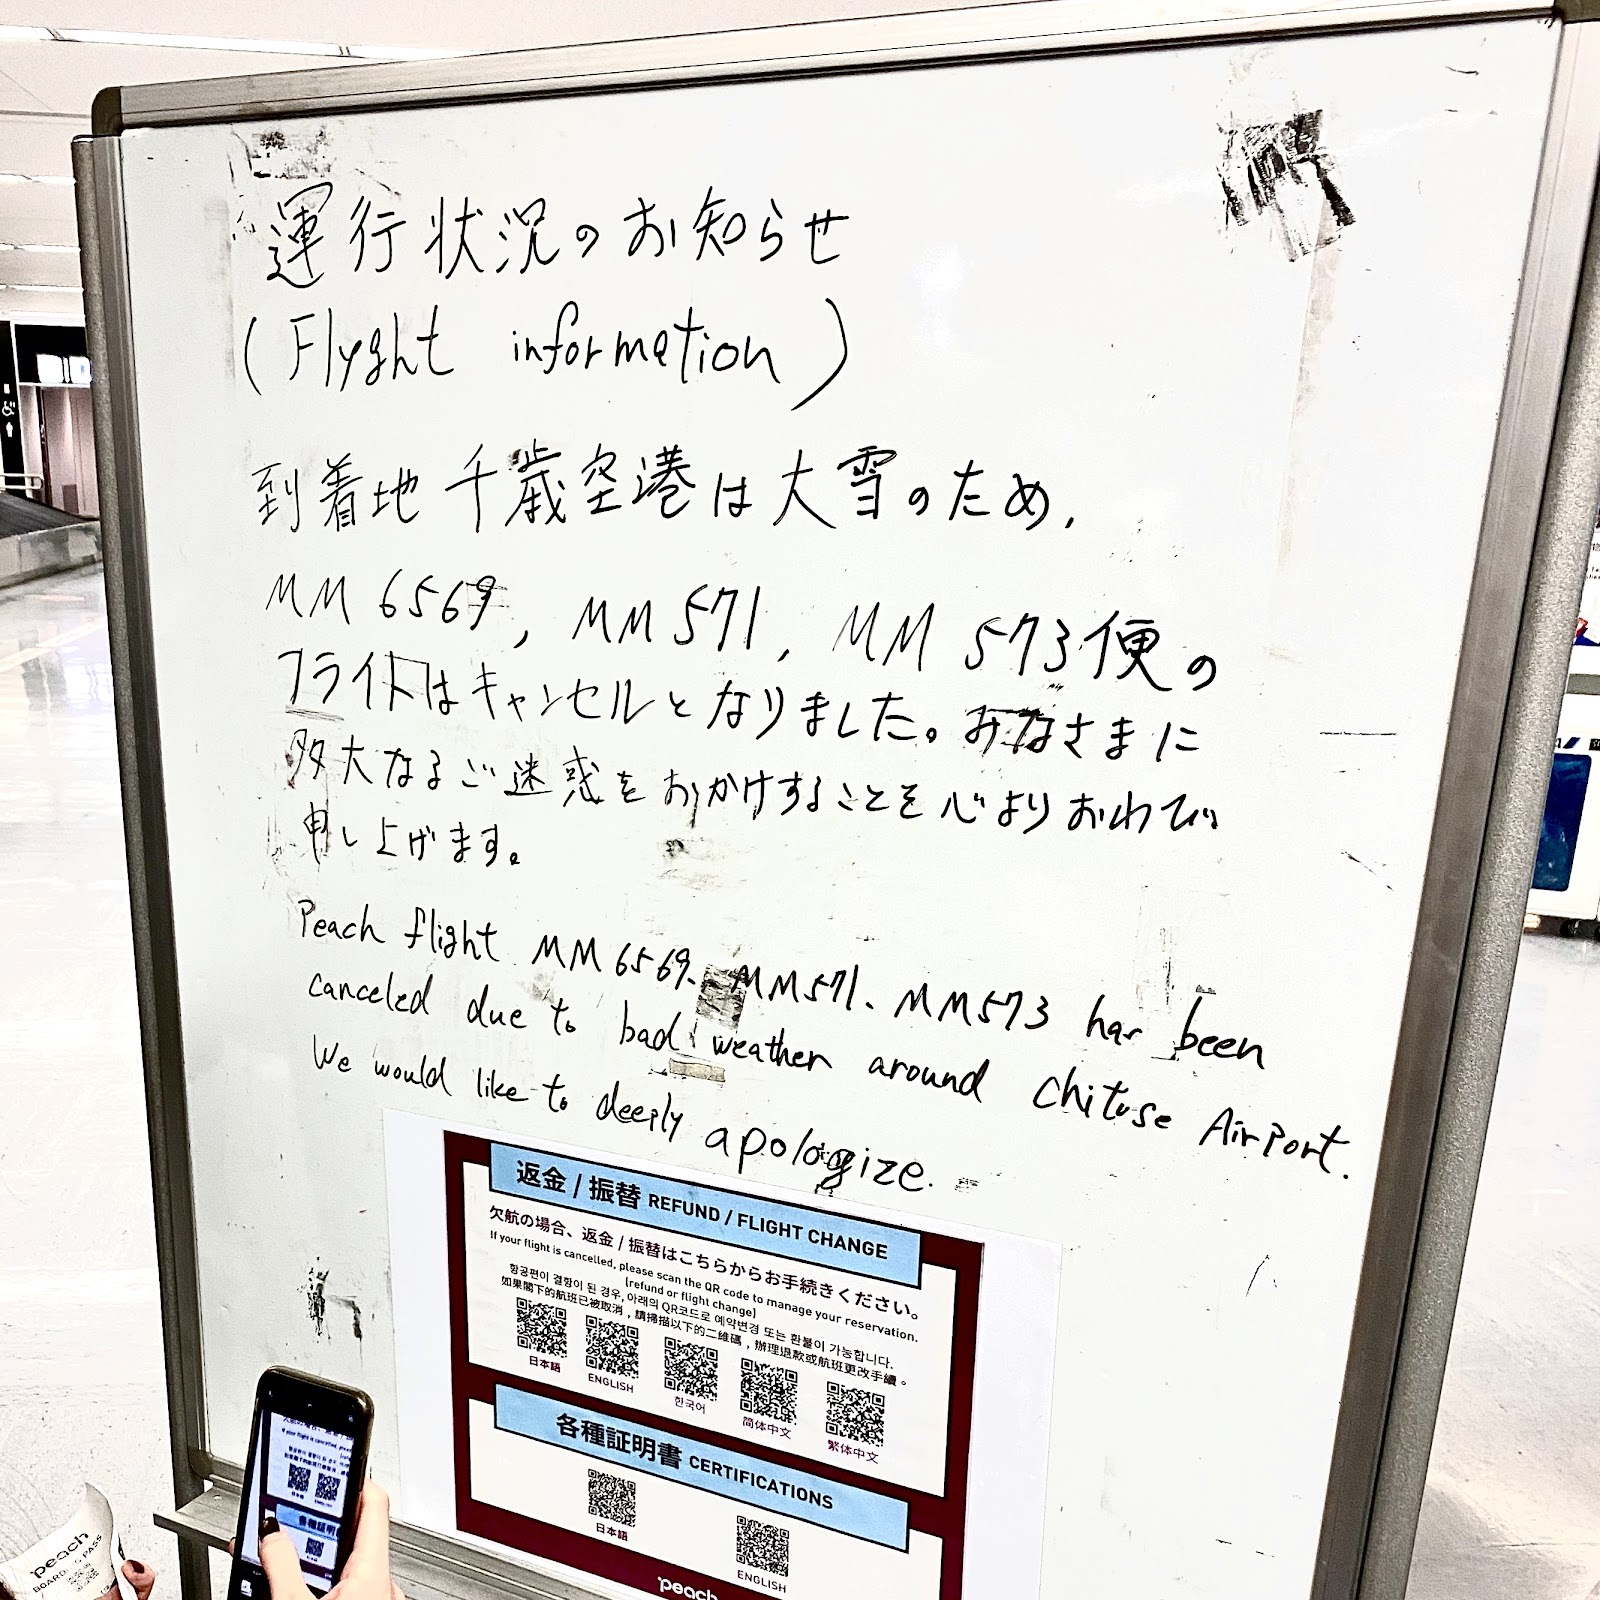 運行状況のお知らせ
(Flyght information)
到着地 千歳空港は大雪のため,
MM6569, MM571, MM573便の
フライトはキャンセルとなりました。みなさまに
多大なるご迷惑をおかけすることを心よりおわび
申し上げます。
Peach flight MM6569、MM571、MM573 has been
canceled due to bad weather around Chitose Airport.
We would like to deeply apologize.
返金 / 振替 REFUND / FLIGHT CHANGE
欠航の場合、返金 / 振替はこちらからお手続きください。
If your flight is cancelled, please scan the QR code to manage your reservation.
(refund or flight change)
항공편이 결항이 된 경우, 아래의 QR코드로 예약변경 또는 환불이 가능합니다.
如果閣下的航班已被取消，請掃描以下的二維碼，辦理退款或航班更改手續。
日本語 ENGLISH 한국어 简体中文 繁体中文
各種証明書 CERTIFICATIONS
日本語 ENGLISH
peach
peach
BOARDING PASS